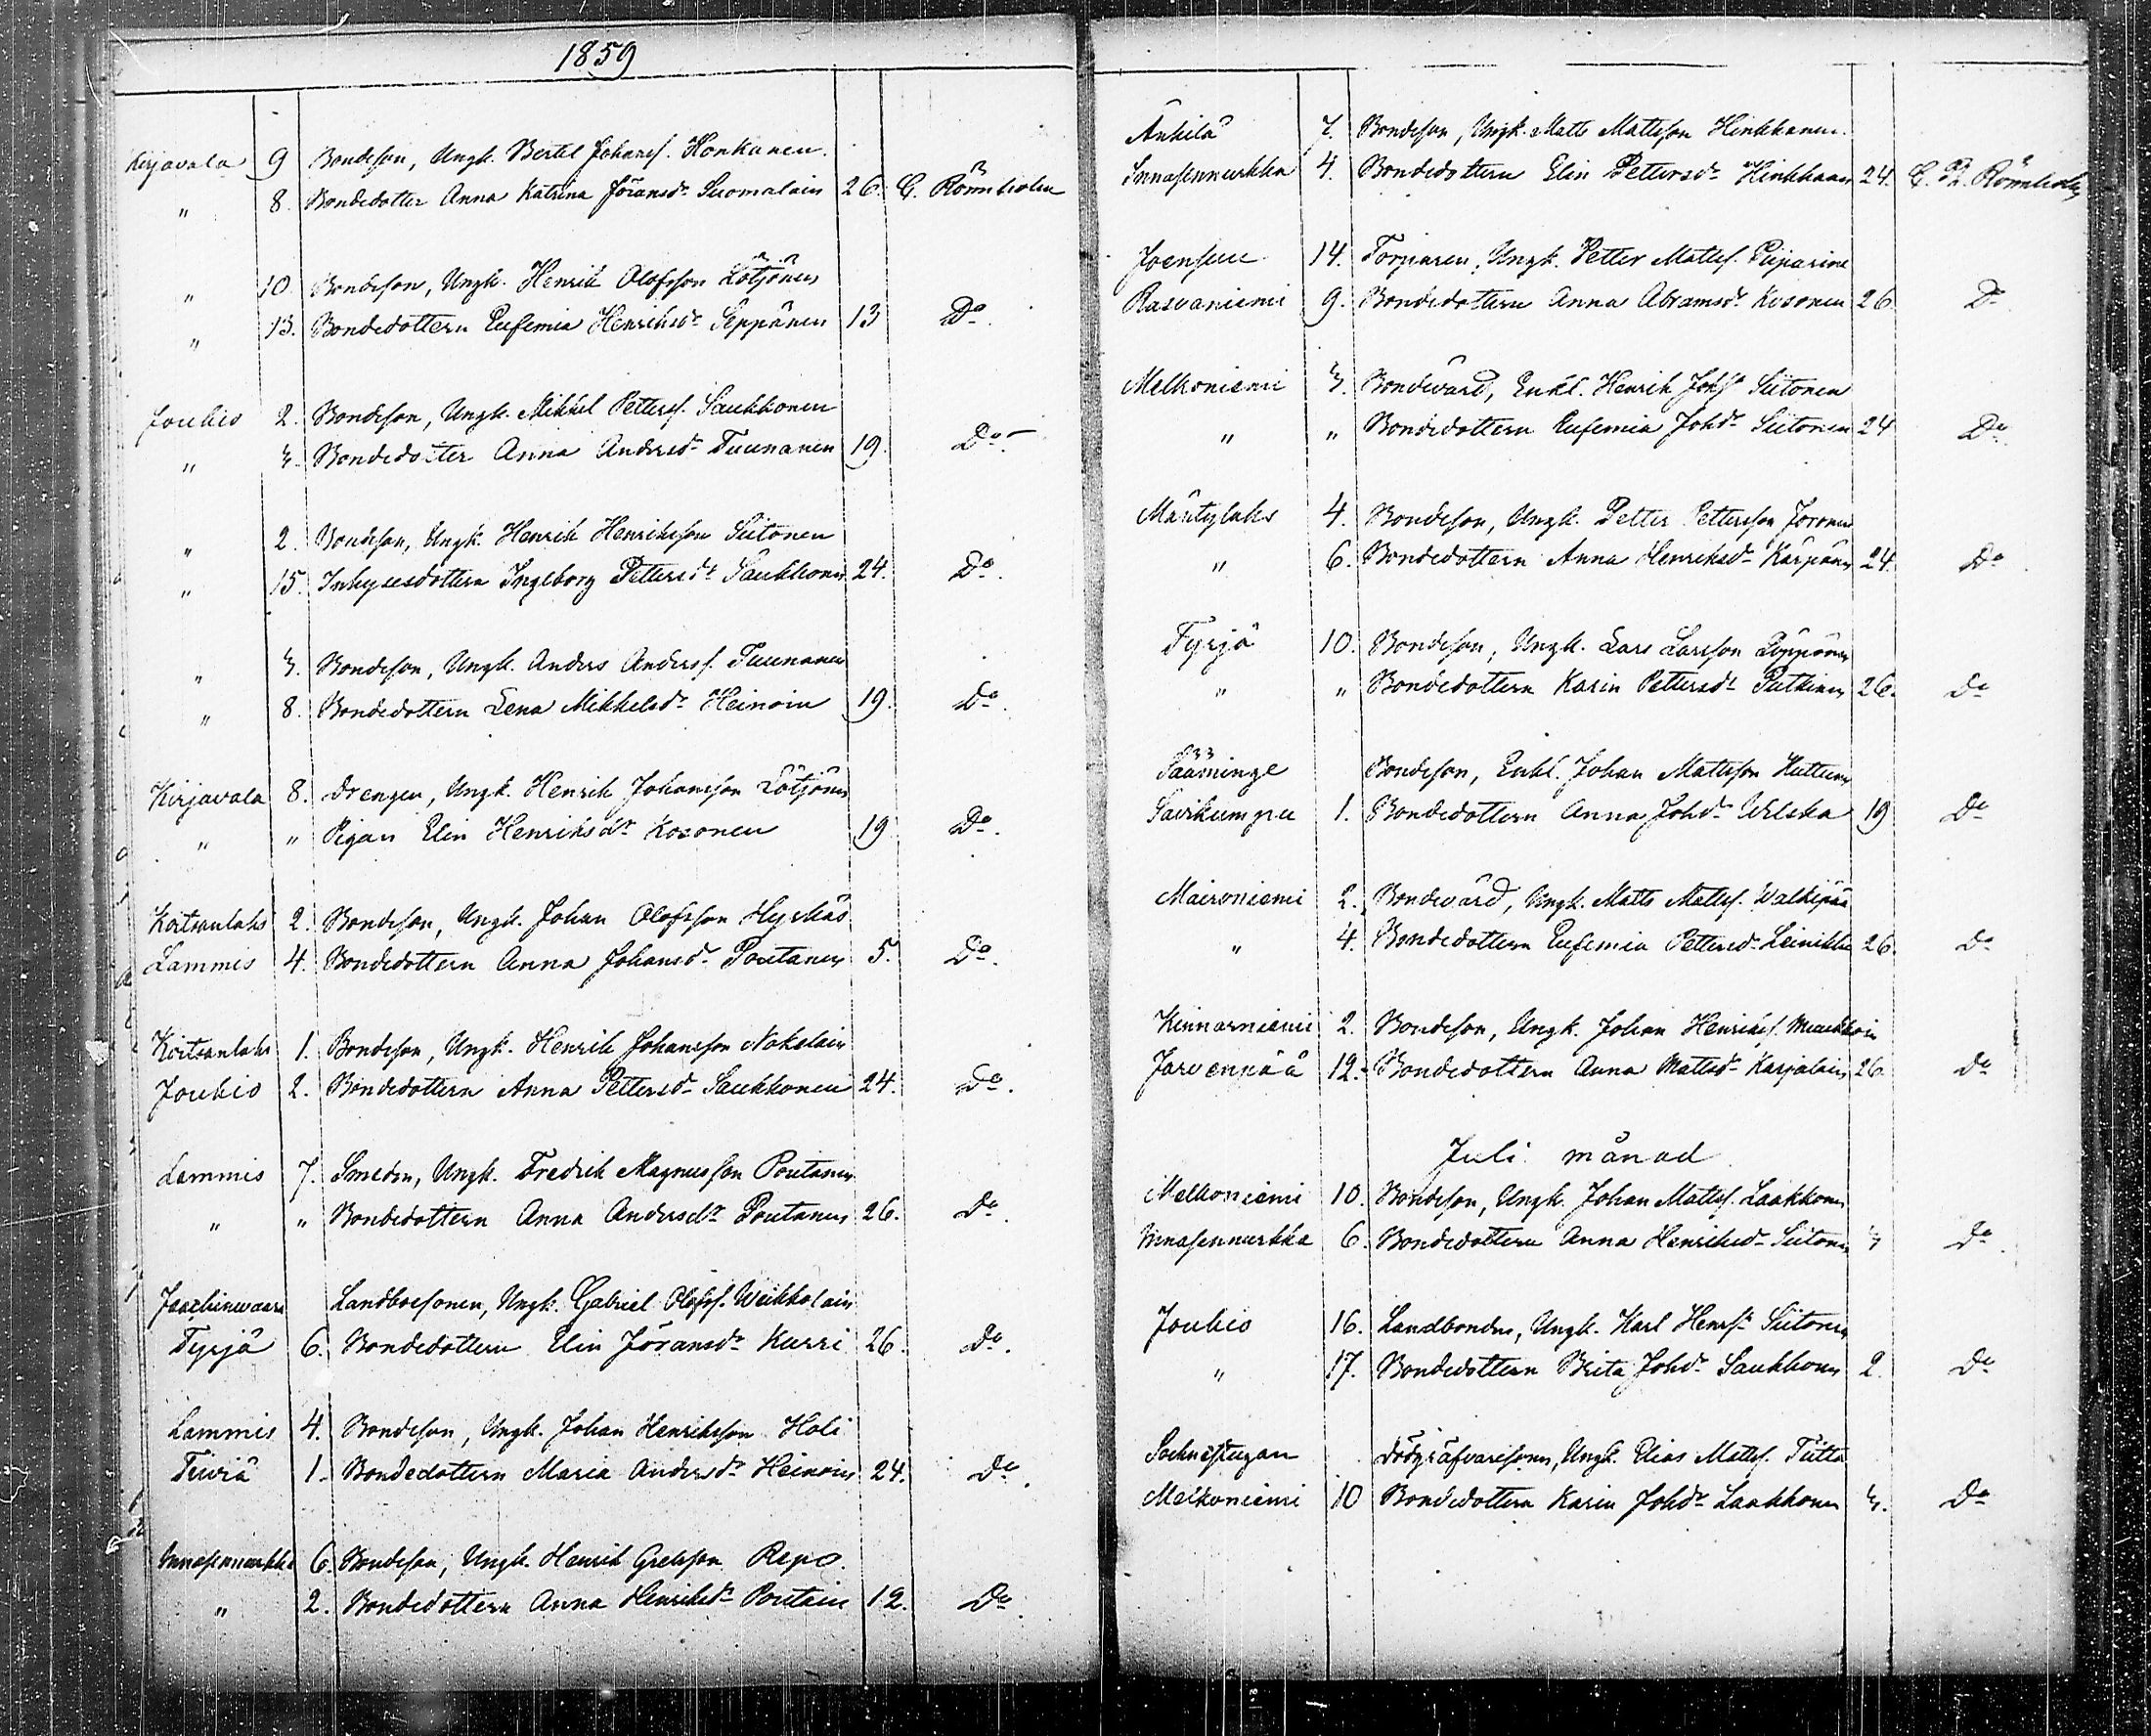 1859
Kirjavala 9 Bondeson, Ungk. Bertel Johansf. Honkanen.
" 8. Bondedotter Anna Katrina Jöransdr Suomalain 26. C. Rönnholm
" 10. Bondeson, Ungk. Henrik Olofsson Lötjönen
" 13. Bondedottern Eufemia Henriksdr Seppänen 13 Do.
Joukio 2. Bondeson, Ungk. Mikkel Pettersf. Saukkonen
" 3. Bondedotter Anna Andersdr Tuunanen 19. Do.
" 2. Bondeson, Ungk. Henrik Henriksson Siitonen
" 15. Inhysesdottern Ingeborg Pettersdr Saukkonen 24. Do.
" 3. Bondeson, Ungk. Anders Andersf. Tuunanen
" 8. Bondedottern Lena Mikkelsdr Heinoin 19. Do.
Kirjavala 8. Drengen, Ungk. Henrik Johansson Lötjönen
" " Pigan Elin Henriksdr Kosonen 19 Do.
Koitsanlaks 2. Bondeson, Ungk. Johan Olofsson Hyrkäs
Lammis 4. Bondedottern Anna Johansdr Poutanen 5. Do.
Koitsanlaks 1. Bondeson, Ungk. Henrik Johansson Nokelain
Joukio 2. Bondedottern Anna Pettersdr Saukkonen 24. Do.
Lammis 7. Smeden, Ungk. Fredrik Magnusson Poutanen
" " Bondedottern Anna Andersdr Poutanen 26. Do
Landboesonen, Ungk. Gabriel Olofsf. Weikkolain
Tyrjä 6. Bondedottern Elin Jöransdr Kurri 26. Do.
Lammis 4. Bondeson, Ungk. Johan Henriksson Holi
Tiuria 1. Bondedottern Maria Andersdr Heinoin 24. Do.
Innasennurkka 6. Bondeson, Ungk. Henrik Grelsson Repo.
" 2. Bondedottern Anna Henriksdr Poutain 12. Do.
Ankila 7. Bondeson, Ungk. Matts Mattsson Hinkkanen.
Innasennurkka 4. Bondedottern Elin Pettersdr Hinkkanen 24. C. Rönnholm
Joensuu 14. Torparen, Ungk. Petter Mattsf. Piiparine
Rasvaniemi 9. Bondedottern Anna Abramsdr Kosonen 26. Do
Melkoniemi 3. Bondevärd, Enkl. Henrik Johsn Siitonen
" " Bondedottern Eufemia Johdr Siitonen 24 Do.
Mäntylaks 4. Bondeson, Ungk. Petter Pettersson Joronen
" 6. Bondedottern Anna Henriksdr Kärpänen 24. Do
Tyrjä 10. Bondeson, Ungk. Lars Larsson Löppönen
" " Bondedottern Karin Pettersdr Putkinen 26. Do
Sääminge Bondeson, Enkl. Johan Mattsson Huttunen
Savikumpu 1. Bondedottern Anna Johdr Uhlska 19 Do
Maironiemi 2. Bondevärd, Ungk. Matts Mattsf. Walkipää
" 4. Bondedottern Eufemia Pettersdr Leinikka 26. Do
Kinnarniemi 2. Bondeson, Ungk. Johan Henriksf. Muukkoin
Järvenpää 12. Bondedottern Anna Mattsdr Karjalain 26 Do
Juli månad
Melkoniemi 10. Bondeson, Ungk. Johan Mattsf. Laakkonen
Innasennurkka 6. Bondedottern Anna Henriksdr Siitonen 3 Do.
Joukio 16. Landbonden, Ungk. Karl Henrsn Siitonen
" 17. Bondedottern Brita Johdr Saukkonen 2. Do
Socknestugan Dödgräfvaresonen, Ungk. Elias Mattsf. Tiitta
Melkoniemi 10 Bondedottern Karin Johdr Laakkonen 3. Do